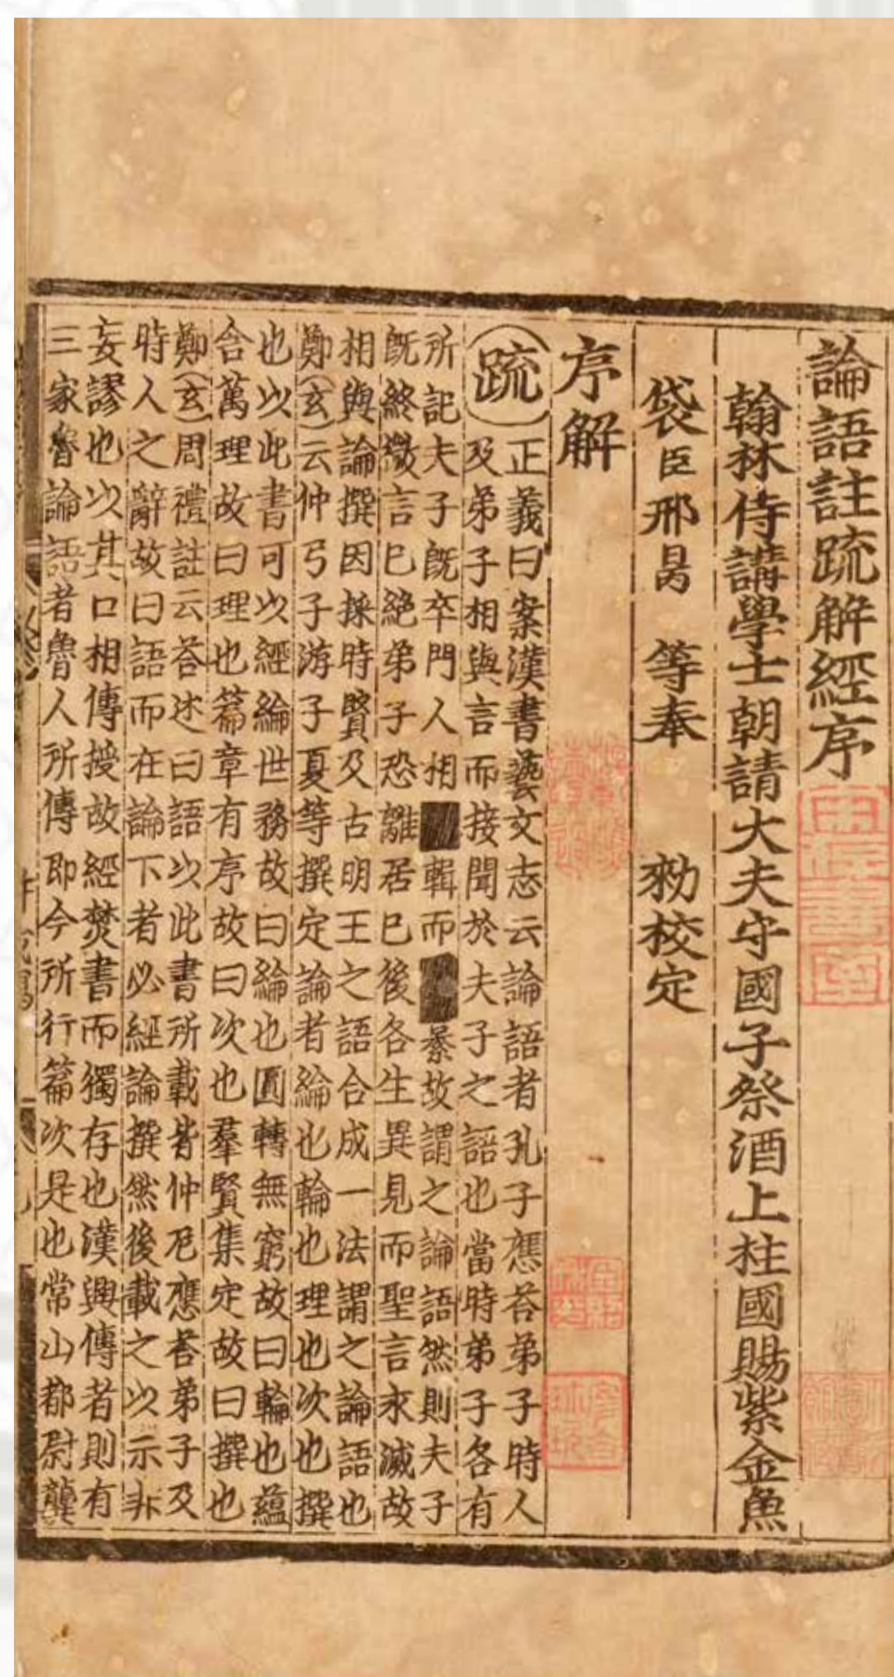 論語註疏解經序
翰林侍講學士朝請大夫守國子祭酒上柱國賜紫金魚
袋臣邢昺 等奉 勑校定
序解
疏 正義曰案漢書藝文志云論語者孔子應荅弟子時人
及弟子相與言而接聞於夫子之語也當時弟子各有
所記夫子既卒門人相輯而纂故謂之論語然則夫子
既終微言已絶弟子恐離居已後各生異見而聖言永滅故
相與論撰因採時賢及古明王之語合成一法謂之論語也
鄭(玄)云仲弓子游子夏等撰定論者綸也輪也理也次也撰
也以此書可以經綸世務故曰綸也圓轉無窮故曰輪也蘊
含萬理故曰理也篇章有序故曰次也羣賢集定故曰撰也
鄭(玄)周禮註云荅述曰語以此書所載皆仲尼應荅弟子及
時人之辭故曰語而在論下者必經論撰然後載之以示非
妄謬也以其口相傳授故經焚書而獨存也漢興傳者則有
三家魯論語者魯人所傳即今所行篇次是也常山都尉龔